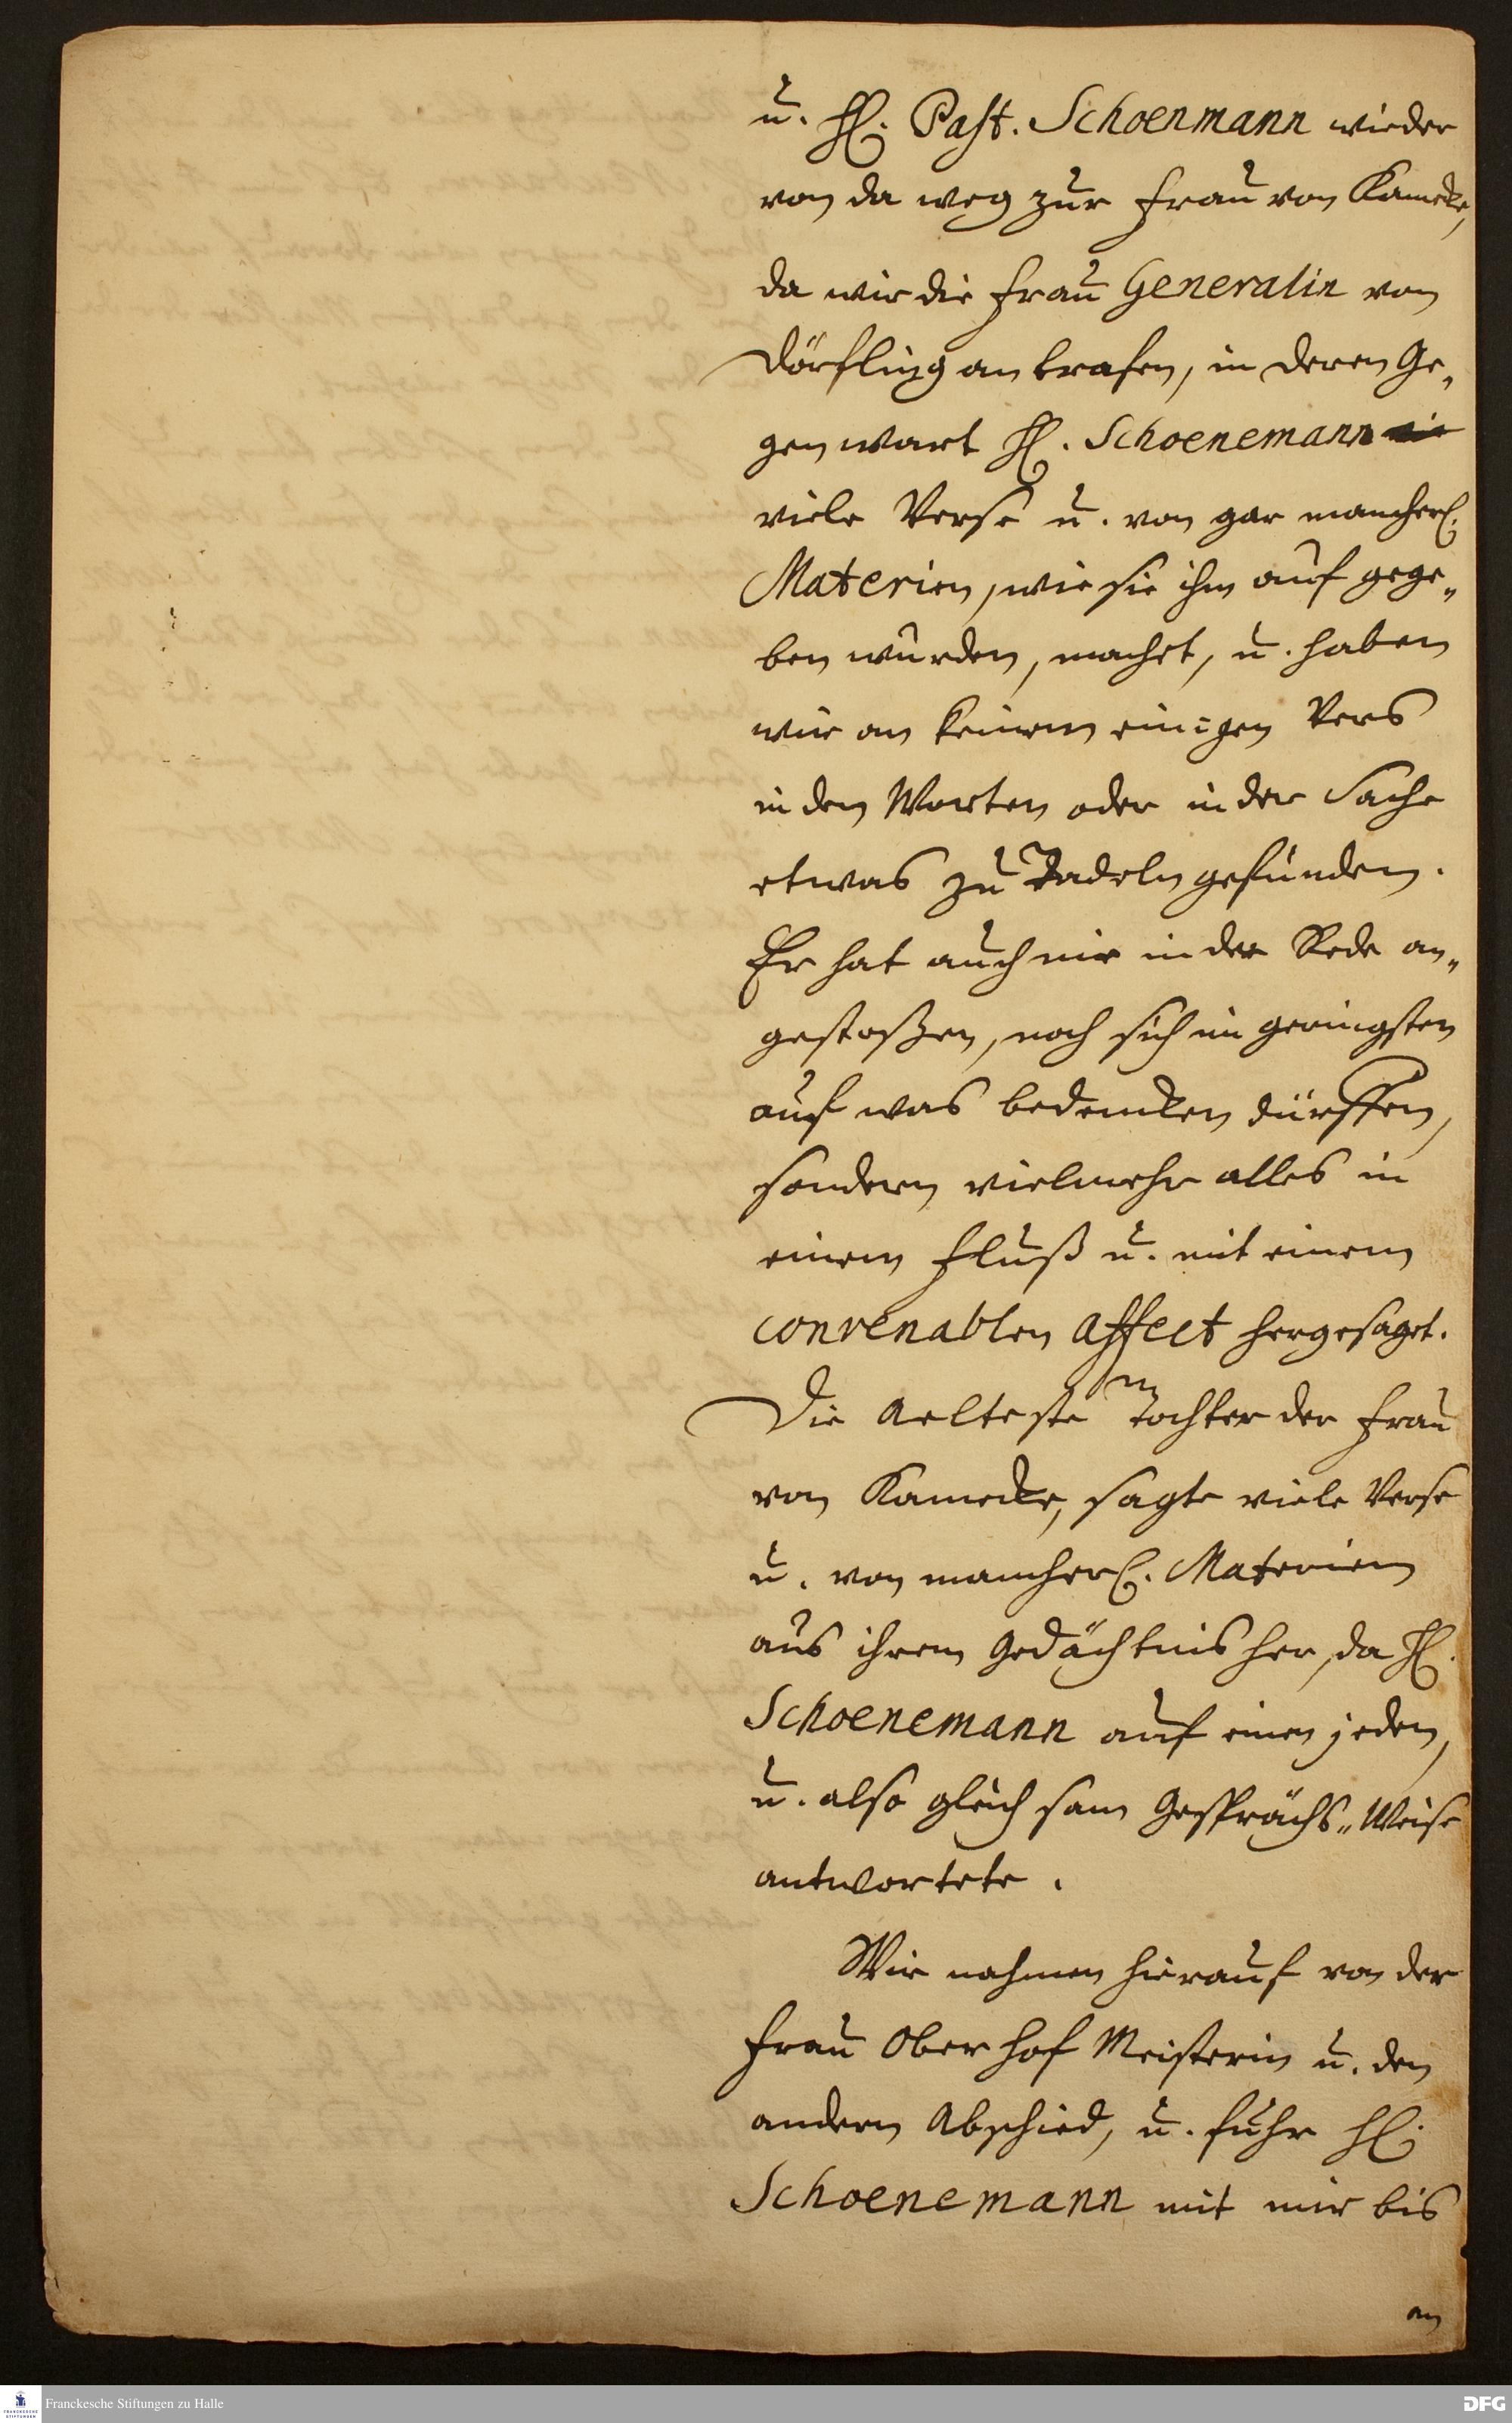 u. H. Past. Schoenmann wieder
von da weg zur Frau von Kameke,
da wir die Frau Generalin von
Dörfling antrafen, in deren Ge„
genwart H. Schoenemann
viele Verse u. von gar mancherl.
Materien, wie sie ihm aufgege„
ben wurden, machet, u. haben
wir an keinem einigen Vers
in den Worten oder in der Sache
etwas zu Tadeln gefunden.
Er hat auch nie in der Rede an„
gestoßen, noch sich im geringsten
auf was bedencken dürffen,
sondern vielmehr alles in
einem Fluß u. mit einem
convenablen Affect hergesaget.
Die Aelteste Tochter der Frau
von Kameke, sagte viele Verse
u. von mancherl. Materien
aus ihrem Gedächtnis her, da H.
Schoenemann auf einen jeden,
u. also gleichsam Gesprächs„Weise
antwortete.
Wir nahmen hierauf von der
Frau Oberhof Meisterin u. den
andern Abschied, u. fuhr H.
Schoenemann mit mir bis
an
Franckesche Stiftungen zu Halle
DFG